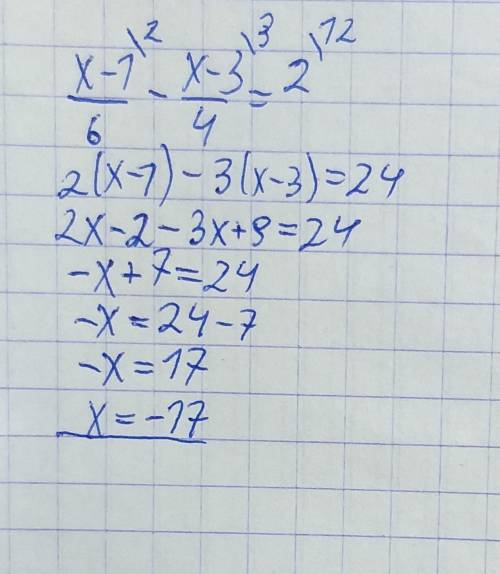 \2 \3 \12
x-1 x-3
— - — = 2
6 4
2(x-1) - 3(x-3) = 24
2x-2-3x+9=24
-x+7=24
-x=24-7
-x=17
x=-17